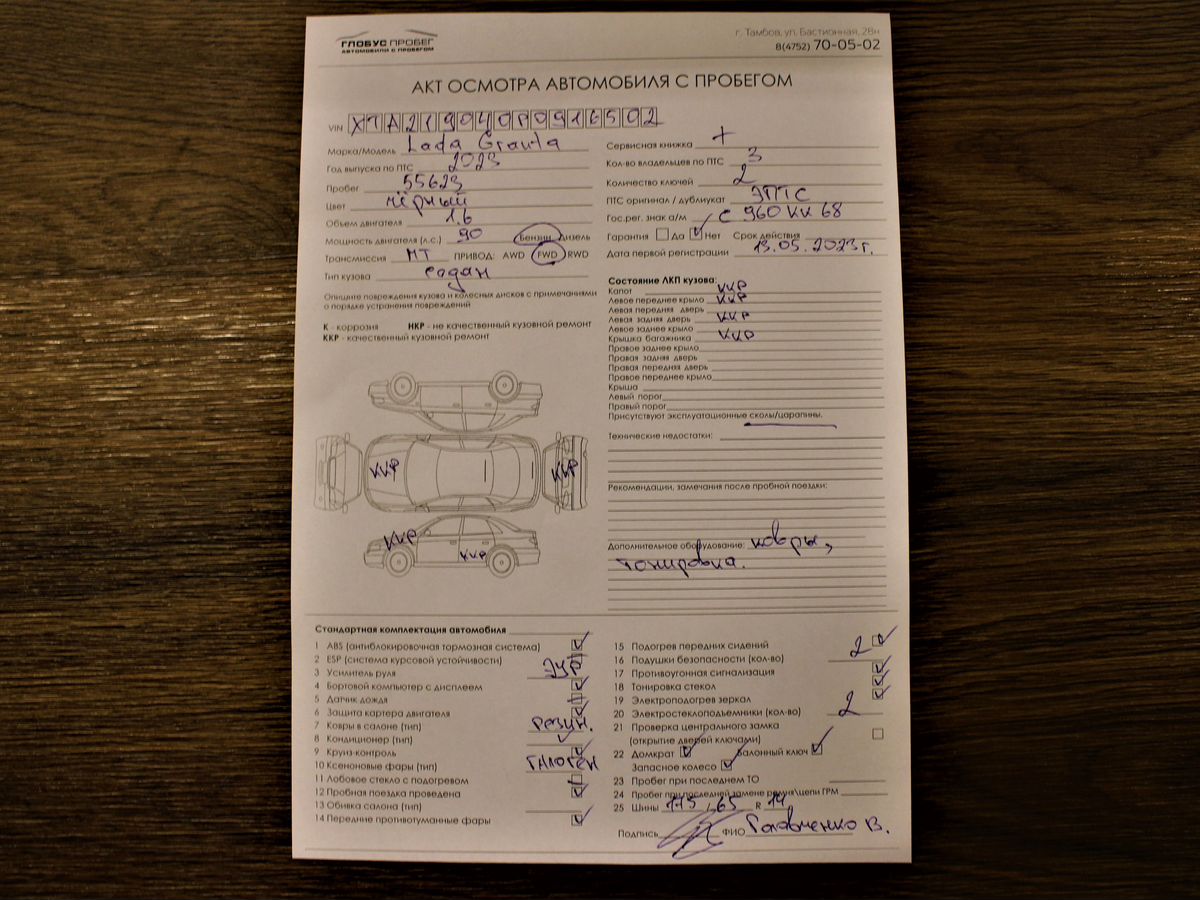 ГЛОБУС ПРОБЕГ
АВТОМОБИЛИ С ПРОБЕГОМ
г. Тамбов, ул. Бастионная, 28н
8(4752) 70-05-02
АКТ ОСМОТРА АВТОМОБИЛЯ С ПРОБЕГОМ
VIN XTA219040P0916502
Марка/Модель Lada Granta
Год выпуска по ПТС 2023
Пробег 55623
Цвет чёрный
Объем двигателя 1.6
Мощность двигателя (л.с.) 90 Бензин Дизель
Трансмиссия МТ ПРИВОД: AWD FWD RWD
Тип кузова седан
Опишите повреждения кузова и колесных дисков с примечаниями
о порядке устранения повреждений
К - коррозия НКР - не качественный кузовной ремонт
ККР - качественный кузовной ремонт
ККР
ККР
ККР
ККР
Сервисная книжка +
Кол-во владельцев по ПТС 3
Количество ключей 2
ПТС оригинал / дубликат ЭПТС
Гос.рег. знак а/м С 960 КК 68
Гарантия Да Нет Срок действия
Дата первой регистрации 13.05.2023г.
Состояние ЛКП кузова:
Капот ККР
Левое переднее крыло ККР
Левая передняя дверь
Левая задняя дверь ККР
Левое заднее крыло
Крышка багажника ККР
Правое заднее крыло
Правая задняя дверь
Правая передняя дверь
Правое переднее крыло
Крыша
Левый порог
Правый порог
Присутствуют эксплуатационные сколы/царапины.
Технические недостатки:
Рекомендации, замечания после пробной поездки:
Дополнительное оборудование: ковры,
тонировка.
Стандартная комплектация автомобиля
1 ABS (антиблокировочная тормозная система)
2 ESP (система курсовой устойчивости)
3 Усилитель руля ЭУР
4 Бортовой компьютер с дисплеем
5 Датчик дождя
6 Защита картера двигателя
7 Ковры в салоне (тип) резин.
8 Кондиционер (тип)
9 Круиз-контроль
10 Ксеноновые фары (тип) галоген
11 Лобовое стекло с подогревом
12 Пробная поездка проведена
13 Обивка салона (тип)
14 Передние противотуманные фары
15 Подогрев передних сидений
16 Подушки безопасности (кол-во) 2
17 Противоугонная сигнализация
18 Тонировка стекол
19 Электроподогрев зеркал
20 Электростеклоподъемники (кол-во) 2
21 Проверка центрального замка
(открытие дверей ключами)
22 Домкрат Балонный ключ
Запасное колесо
23 Пробег при последнем ТО
24 Пробег при последней замене ремня\цепи ГРМ
25 Шины 175 / 65 R 14
Подпись ФИО Головченко В.